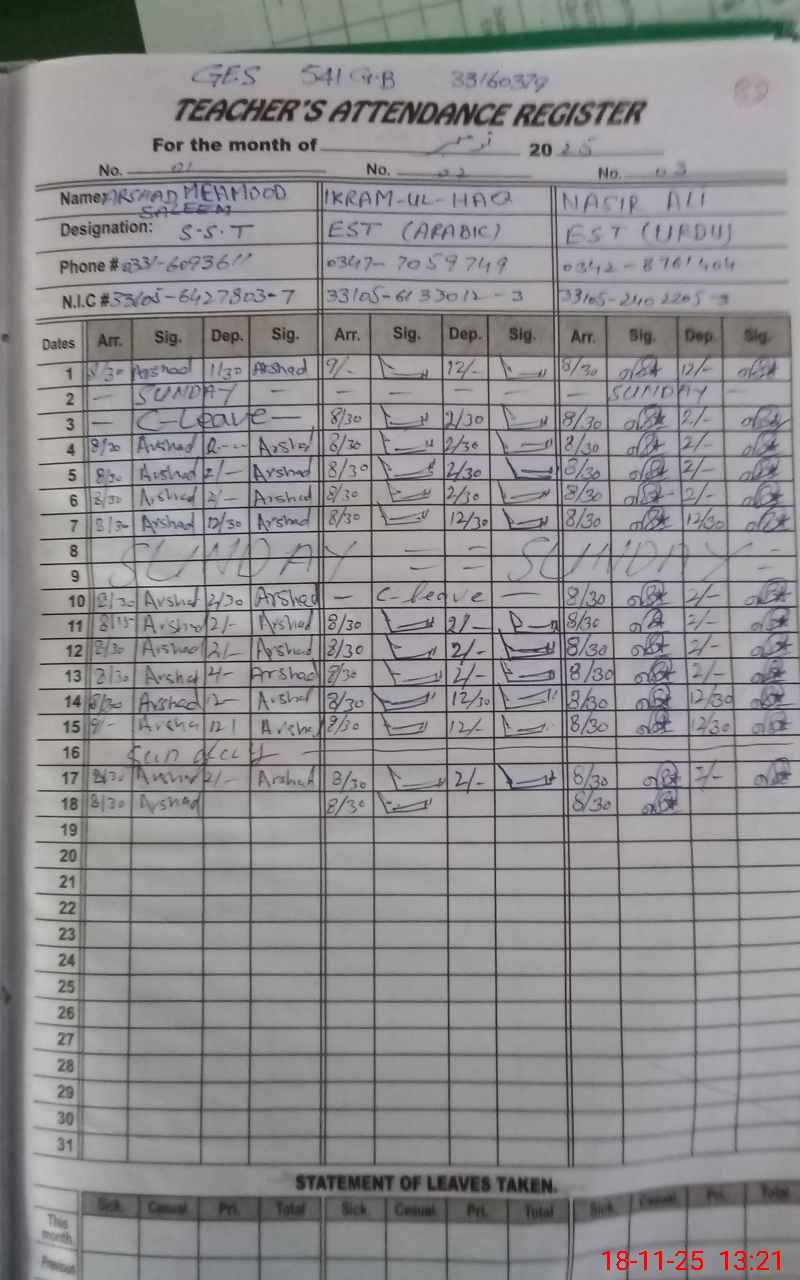 GES 541 GB 33160379
TEACHER'S ATTENDANCE REGISTER
For the month of نومبر 20 25
No. 01 No. 02 No. 03
Name: ARSHAD MEHMOOD SALEEM IKRAM-UL-HAQ NASIR ALI
Designation: S.S.T EST (ARABIC) EST (URDU)
Phone # 0347-7059749
N.I.C # 33105-6427803-7 33105-6133012-3
Dates Arr. Sig. Dep. Sig. Arr. Sig. Dep. Sig. Arr. Sig. Dep. Sig.
1 8/30 Arshad 1/30 Arshad 9/- 12/- 8/30 12/-
2 — SUNDAY — — — — — — SUNDAY —
3 — C-Leave — 8/30 2/30 8/30 2/-
4 8/30 Arshad Arshad 8/30 2/30 8/30 2/-
5 8/30 Arshad 2/- Arshad 8/30 2/30 8/30 2/-
6 8/30 Arshad 2/- Arshad 8/30 2/30 8/30 2/-
7 8/30 Arshad 12/30 Arshad 8/30 12/30 8/30 12/30
8 SUNDAY SUNDAY
9
10 8/30 Arshad 2/30 Arshad — C-leave — 8/30 2/-
11 8/15 Arshad 2/- Arshad 8/30 2/- 8/30 2/-
12 8/30 Arshad 2/- Arshad 8/30 2/- 8/30 2/-
13 8/30 Arshad Arshad 8/30 2/- 8/30 2/-
14 8/30 Arshad 12- Arshad 8/30 12/30 8/30 12/30
15 9- Arshad Arshad 8/30 12/- 8/30 12/30
16 Sunday
17 8/30 Arshad 2/- Arshad 8/30 2/- 8/30 2/-
18 8/30 Arshad 8/30 8/30
19
20
21
22
23
24
25
26
27
28
29
30
31
STATEMENT OF LEAVES TAKEN.
Sick. Casual. Pri. Total Sick. Casual. Pri. Total Sick. Casual. Pri. Total
This month.
Previous
18-11-25 13:21